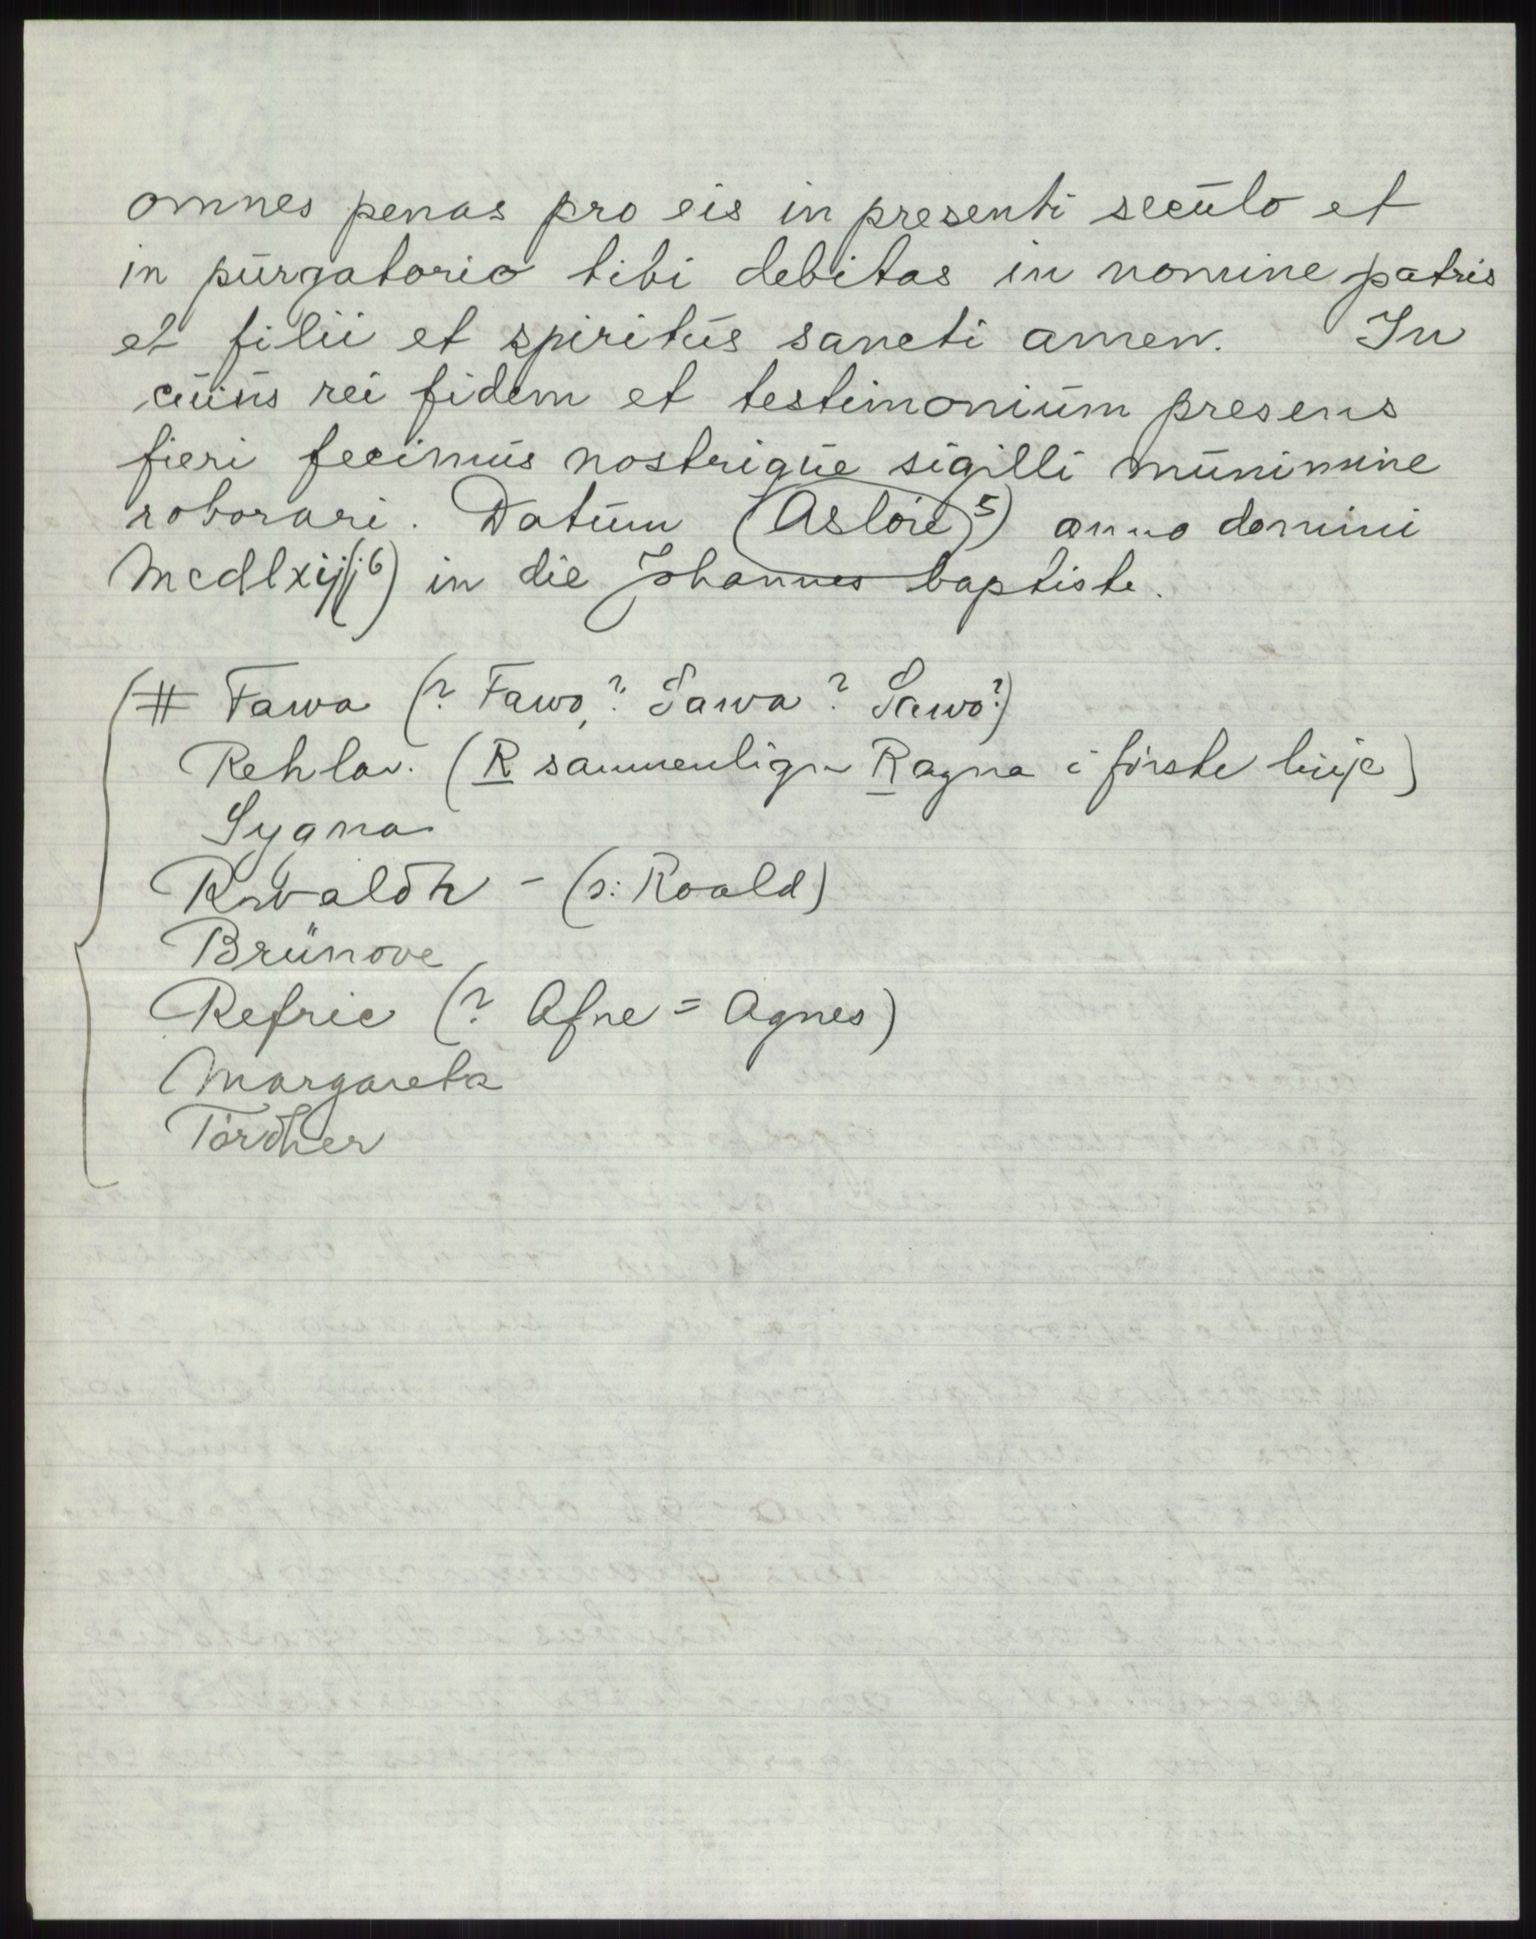 omnes penas pro eis in presenti secŭlo et
in pŭrgatorio tibi debitas in nomine patris
et filii et spiritŭs sancti amen. In
cŭiŭs rei fidem et testimoniŭm presens
fieri fecimŭs nostriqŭe sigilli mŭnimine
roborari. Datŭm (Asloie 5) anno domini
Mcdlxiij(6) in die Johannes baptiste.
# Fawa (? Fawo,? Sawa? Sawo?)
Rehlav. (R sammenlign Ragna i første linje)
Sygna
Rwaldh - (ɔ: Roald)
Brŭnove
Refric (? Afne = Agnes)
Margareta
Tordher